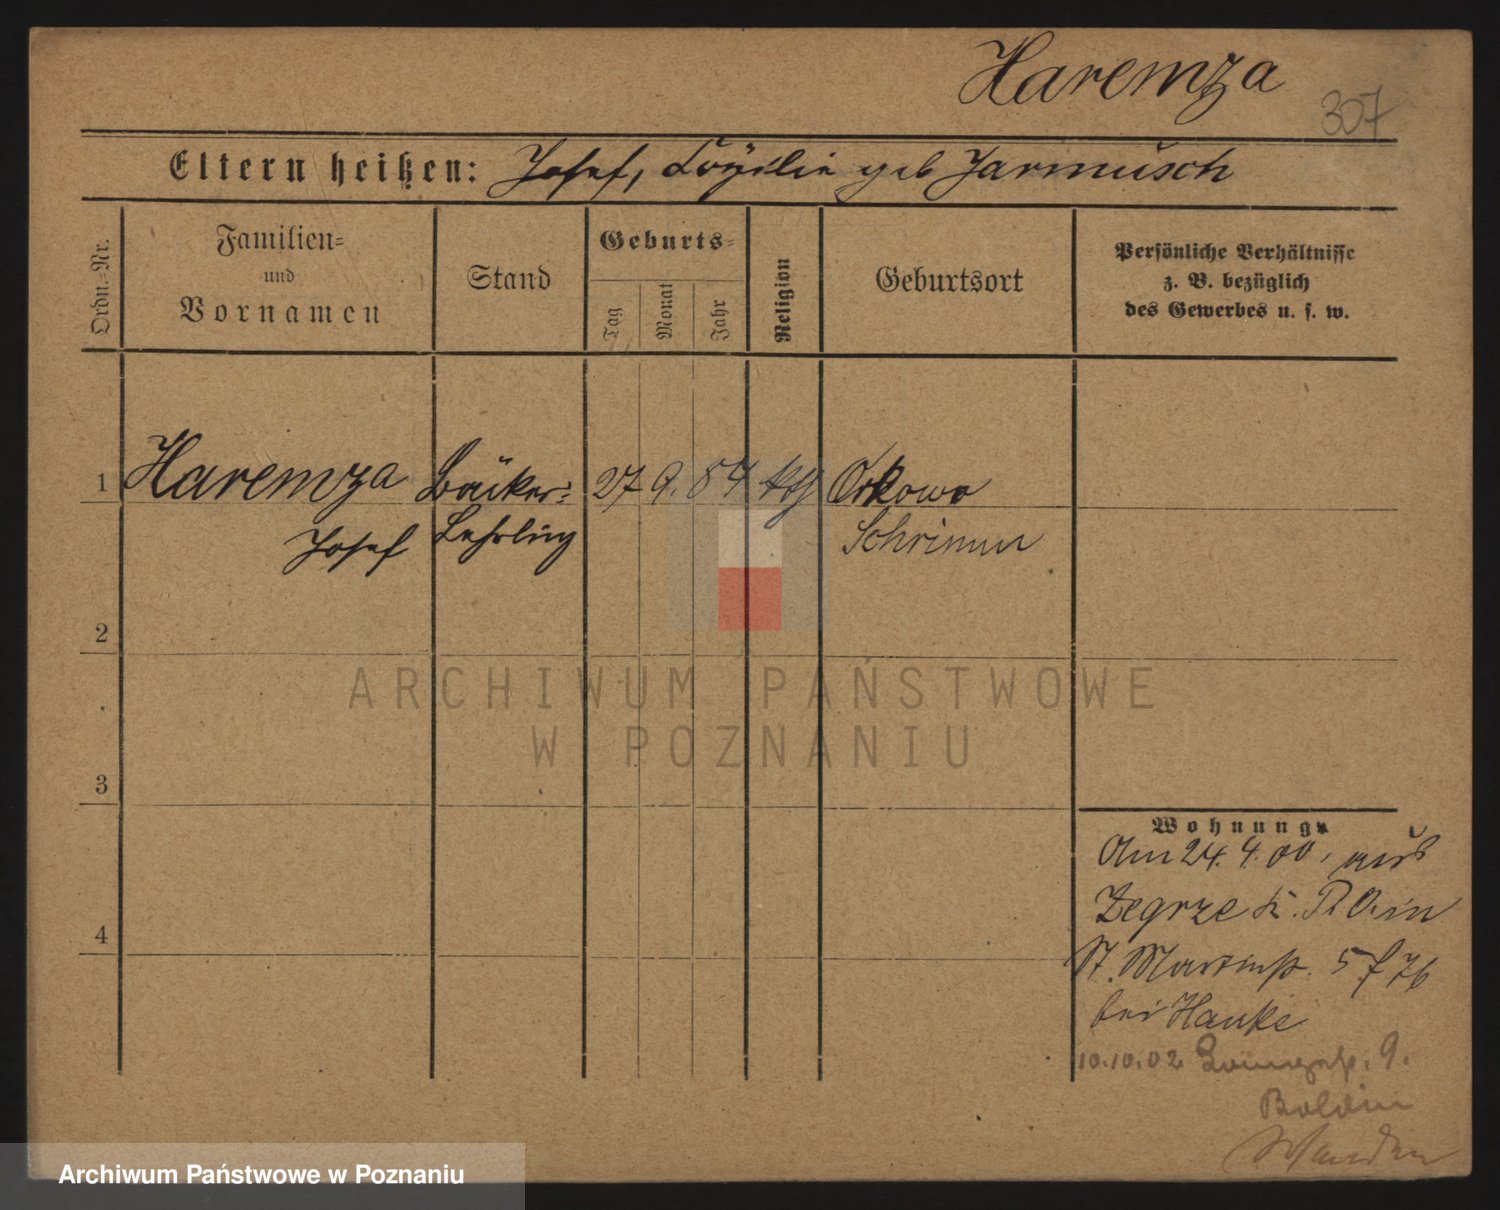 Haremza
307
Eltern heißen: Josef, Cäzilie geb Jarmusch
Ordn.-Nr.
Familien-
und
Vornamen
Stand
Geburts-
Tag
Monat
Jahr
Religion
Geburtsort
Persönliche Verhältnisse
z. B. bezüglich
des Gewerbes u. s. w.
1 Haremza Bäcker- 27 9. 84 kth Orkowo
Josef Lehrling Schrimm
2
ARCHIWUM PAŃSTWOWE
W POZNANIU
3
Wohnung.
Am 24. 4. 00, aus
Zegrze K. P. O. in
4
St. Martinstr. 576
bei Hanke
10.10.02 9.
Archiwum Państwowe w Poznaniu